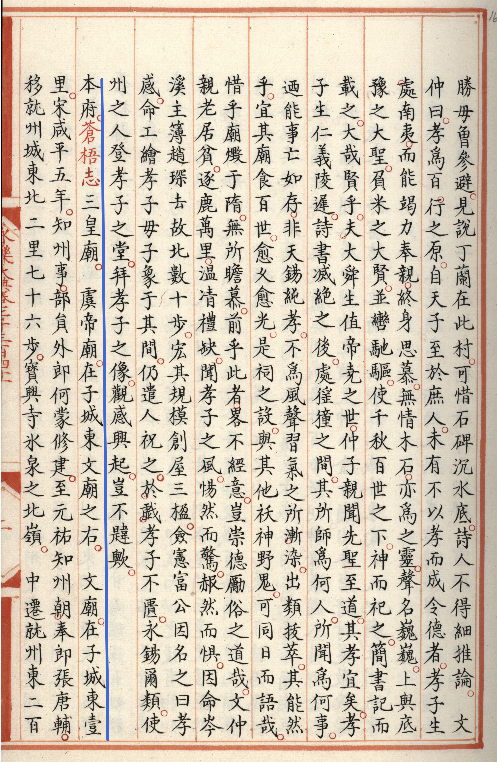 勝母曾參避見說丁蘭在此村可惜石碑沉水底詩人不得細推論　文
仲曰孝爲百行之原自天子至於庶人未有不以孝而成令德者孝子生
處南夷而能竭力奉親終身思慕無情木石亦爲之靈聲名巍巍上與底
豫之大聖負米之大賢並轡馳驅使千秋百世之下神而祀之簡書記而
載之大哉賢乎夫大舜生值帝堯之世仲子親聞先聖至道其孝宜矣孝
子生仁義陵遲詩書滅絶之後處猺獞之間其所師爲何人所聞爲何事
迺能事亡如存非天錫純孝不爲風聲習氣之所漸染出類拔萃其能然
乎宜其廟食百世愈乂愈光是祠之設與其他祅神野鬼可同日而語哉
惜乎廟燬于隋無所瞻慕前乎此者畧不經意豈崇德勵俗之道哉文仲
親老居貧逐鹿萬里溫凊禮缺聞孝子之風惕然而驚赧然而惧因命岑
溪主簿趙琛去故北數十步宏其規模創屋三楹僉憲富公因名之曰孝
感命工繪孝子母子象于其間仍遣人祝之於戲孝子不匱永錫爾類使
州之人登孝子之堂拜孝子之像觀感興起豈不韙歟
本府蒼梧志三皇廟　虞帝廟在子城東文廟之右　文廟在子城東壹
里宋咸平五年知州事部員外郎何蒙修建至元祐知州朝奉郎張唐輔
移就州城東北二里七十六步寶興寺氷泉之北嶺　中遷就州東二百